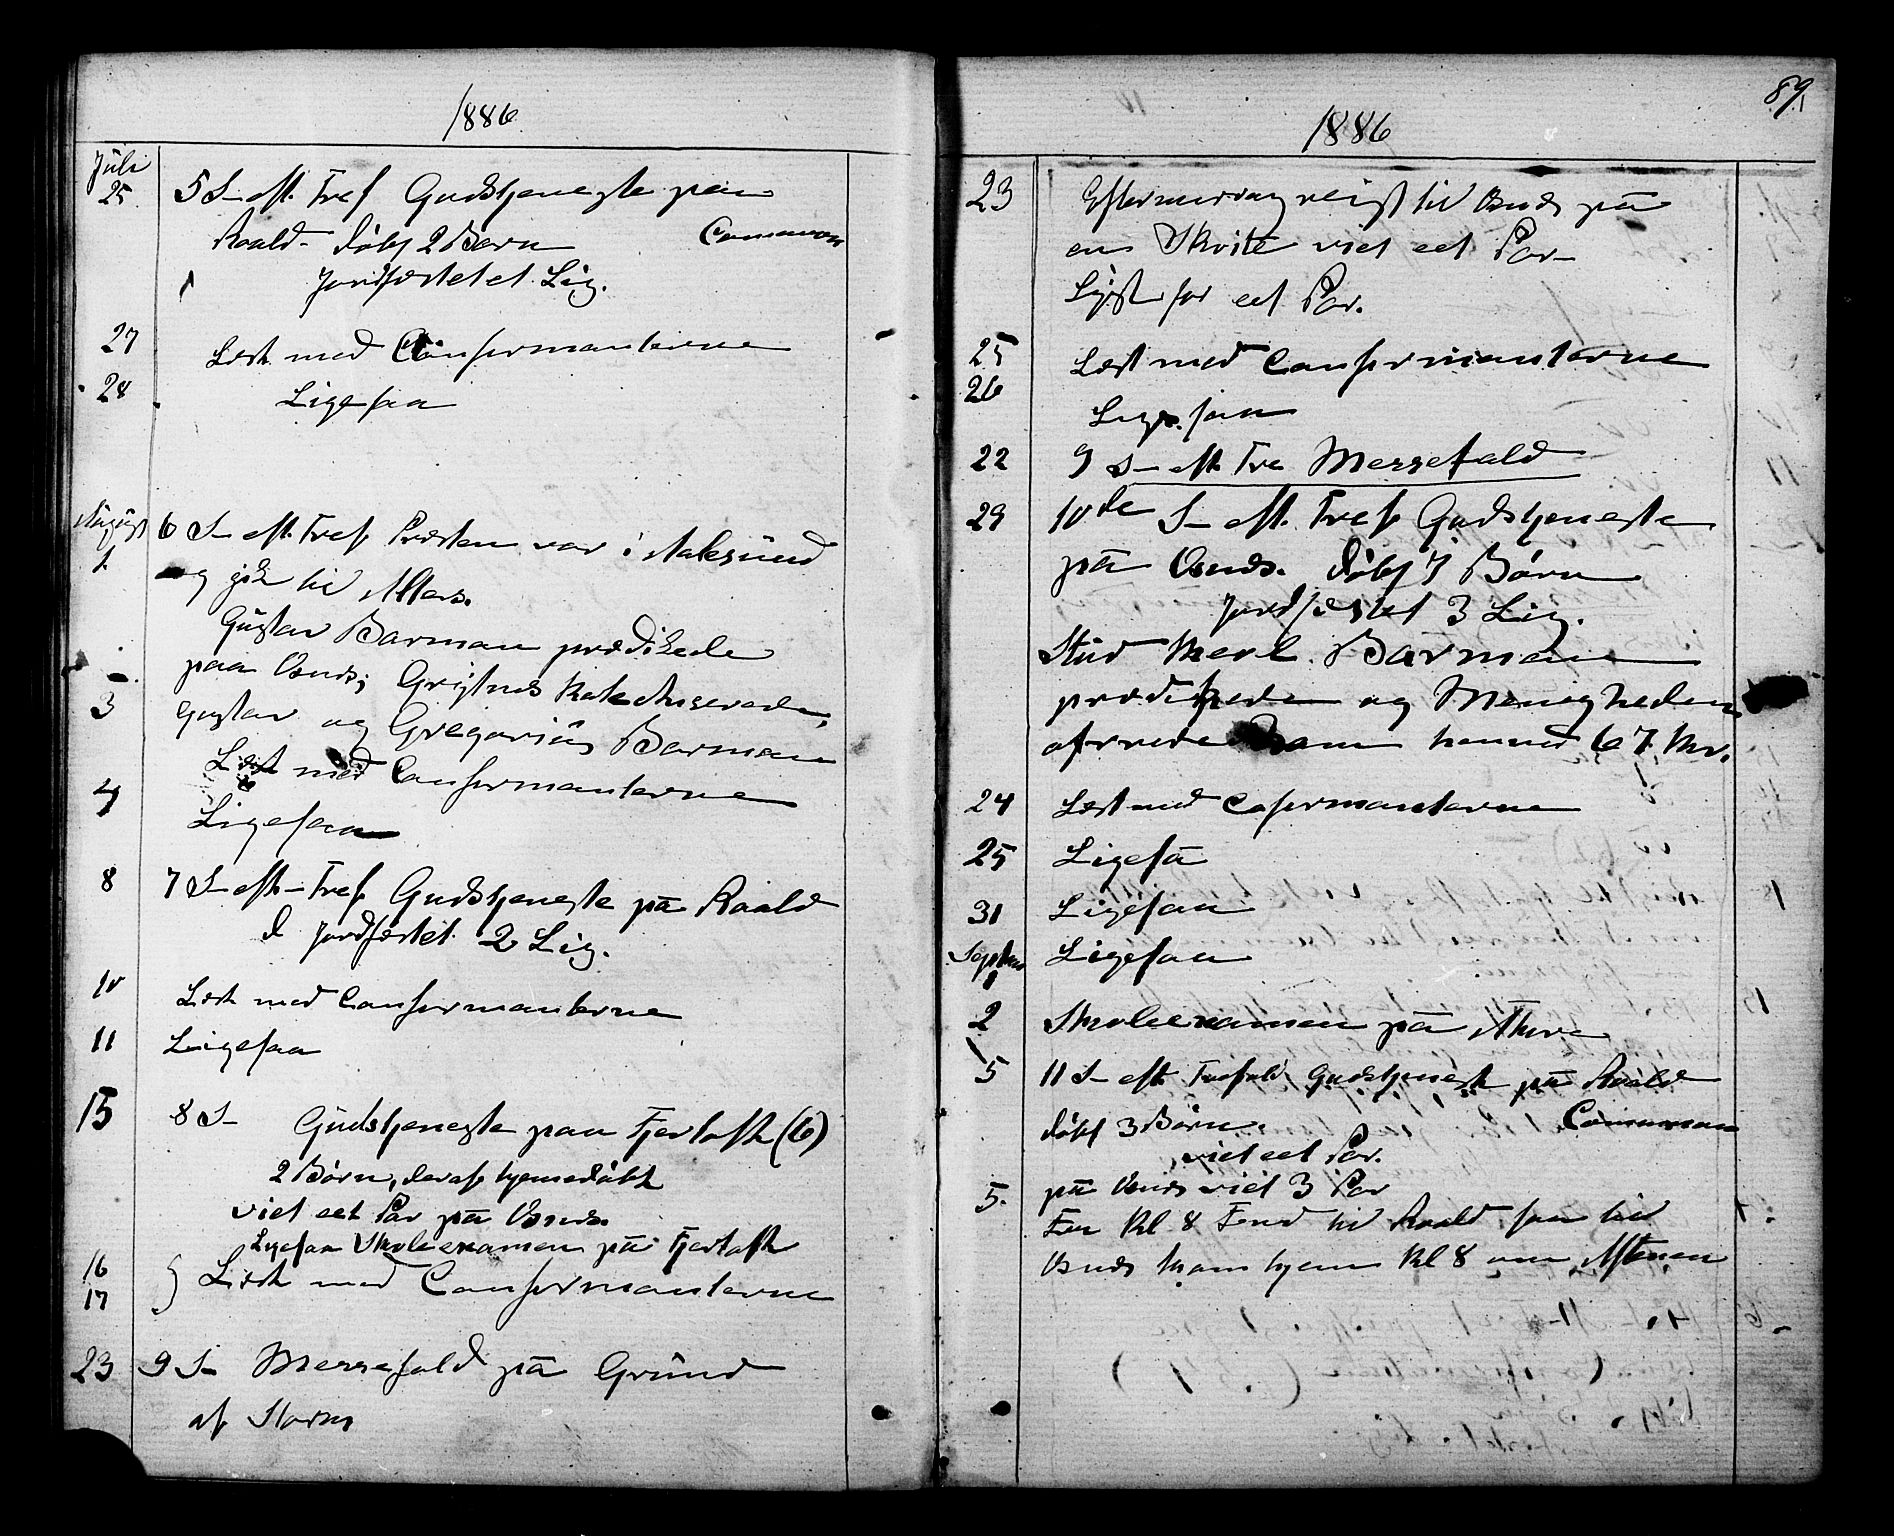 1886
Juli
25 5 S eft. Tref Gudstjeneste paa
Roald – Døbt 2 Børn
Jordfæstet et Lig.
27 Læst med Confirmanterne
28 Ligesaa
August
1. 6 S eft. Tref Præsten var i Aalesund
og gik til Alters.
Gustav Barman prædikede
paa Vænes; Grytnes Katechiserede,
3 Gustav og Gregorius Barman
Læst med Confirmanterne
4 Ligesaa
8 7 S eft Tref Gudstjeneste på Roald
Jordfæstet 2 Lig.
10 Læst med Confirmanterne
11 Ligesaa
15 8 S Gudstjeneste paa Fjærtoft (6)
2 Børn, deraf hjemmedøbt
viet eet Par på
Ligesaa Skoleexamen på Fjærtoft
16
17 Læst med Confirmanterne
23 9 S Messefald på Grund
af Storm
89
1886
23 Eftermiddag reist til på
en Skøite viet eet Par
Lyst for eet Par.
25 Læst med Confirmanterne
26 Ligesaa
22 9 S eft Tre Messefald
29 10de S eft. Tref Gudstjeneste
på Døbt 7 Børn
Jordfæstet 3 Lig.
Stud Barman
prædikede og Menigheden
67 Kr.
24 Læst med Cofirmanterne
25 Ligeså
31 Ligesaa
Septbr
1 Ligesaa
2 Skoleexamen på
5 11 S eft Trefold Gudstjeneste på Roald
døbt 3 Børn.
viet eet Par.
5. på viet 3 Par
Kl 8 til Roald saa til
kom hjem Kl 8 om Aftenen